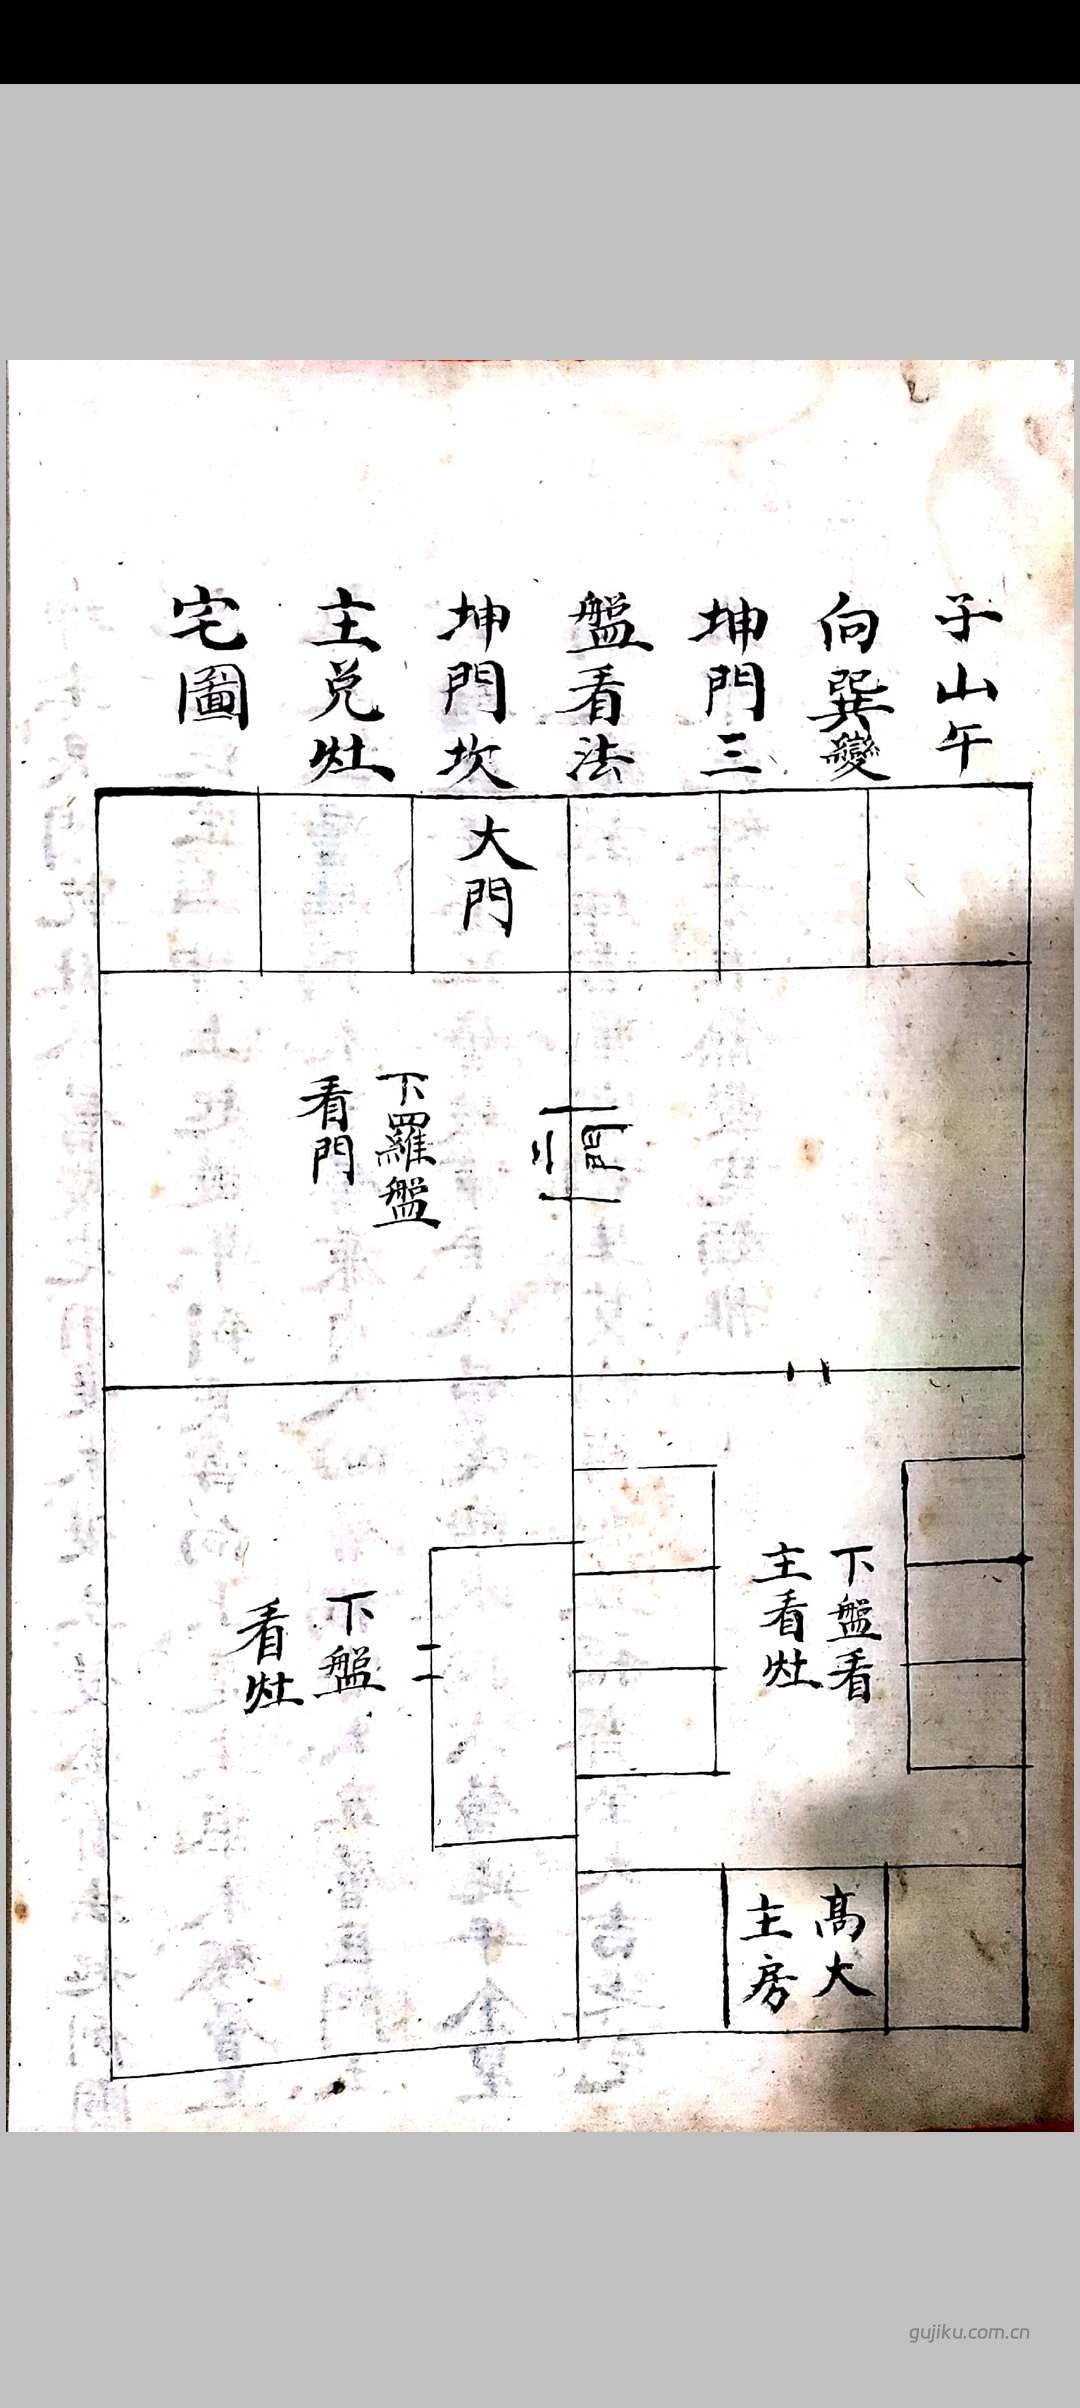 子山午
向巽變
坤門三
盤看法
坤門坎
主兑灶
宅圖
大門
下羅盤
看門
下盤看
主看灶
下盤
看灶
高大
主房
gujiku.com.cn